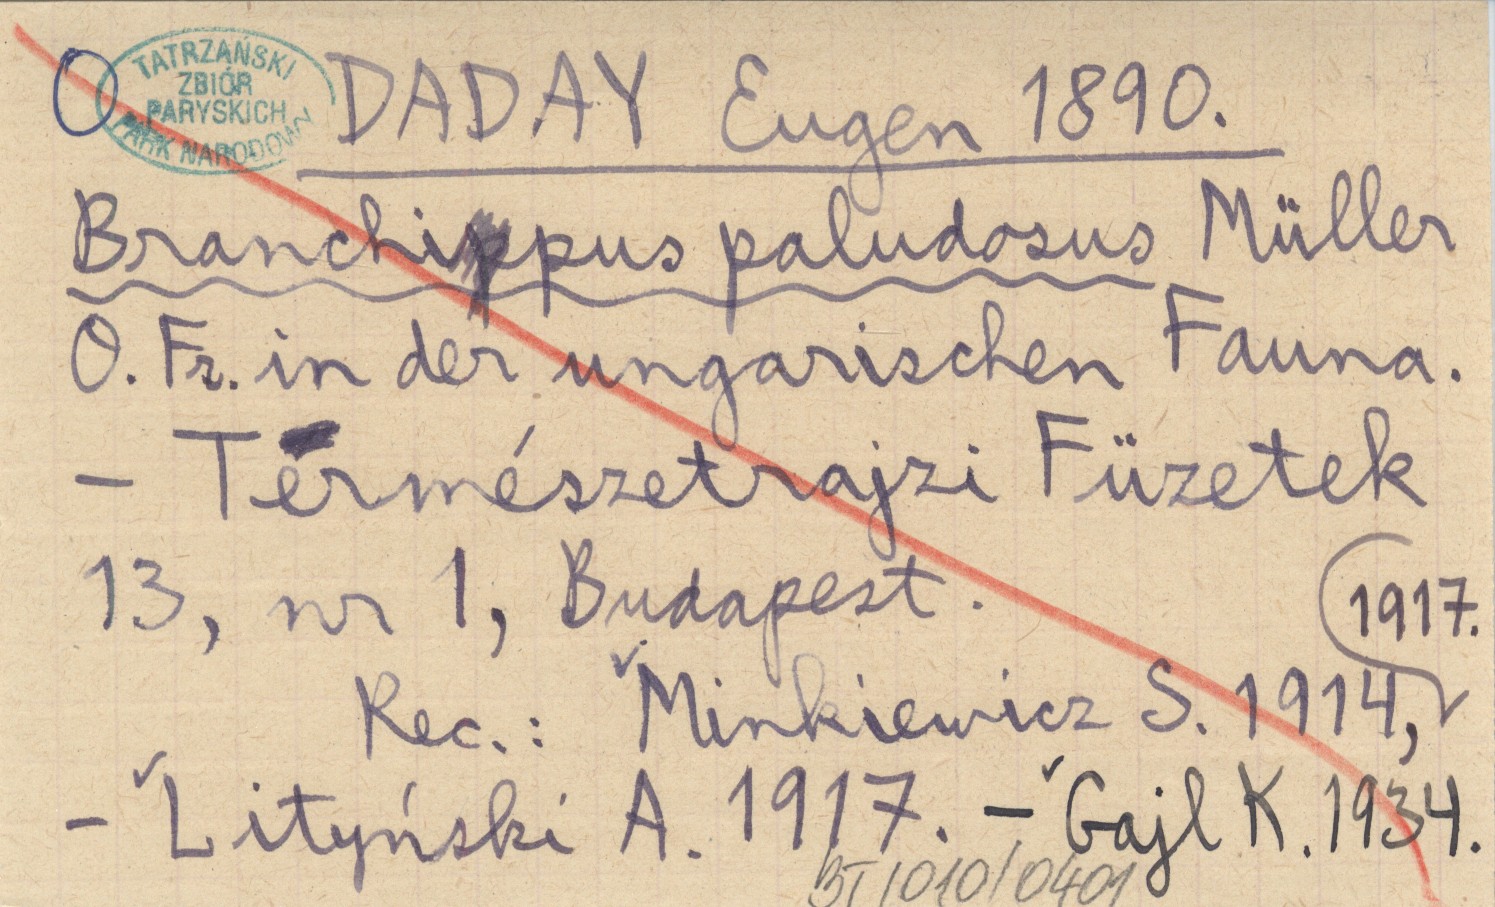 O TATRZAŃSKI
ZBIÓR
PARYSKICH
PARK NARODOWY
DADAY Eugen 1890.
Branchippus paludosus Müller
O. Fr. in der ungarischen Fauna.
- Természetrajzi Füzetek
13, nr 1, Budapest.
1917.
Rec.: Minkiewicz S. 1914,
- Lityński A. 1917. - Gajl K. 1934.
BT/010/0401